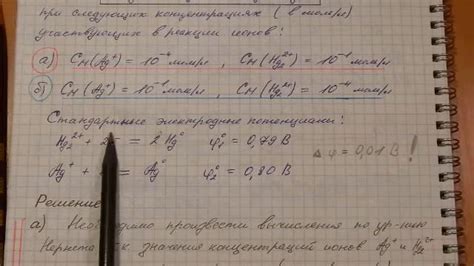 при следующих концентрациях (в моль/л)
участвующих в реакции ионов:
а) Cм(Ag⁺) = 10⁻⁴ моль/л , Cм(Hg₂²⁺) = 10⁻¹ моль/л
б) Cм(Ag⁺) = 10⁻¹ моль/л , Cм(Hg₂²⁺) = 10⁻⁴ моль/л
Стандартные электродные потенциалы:
Hg₂²⁺ + 2 = 2 Hg⁰ φ₁⁰ = 0,79 В
Δφ = 0,01 В !
Ag⁺ + = Ag⁰ φ₂⁰ = 0,80 В
Решение
а) Необходимо произвести вычисления по ур-нию
Нернста значения концентраций ионов Ag⁺ и Hg₂²⁺